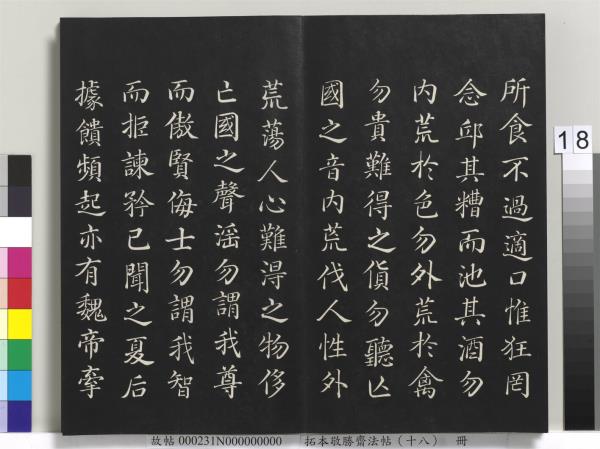 所食不過適口惟狂罔
念邱其糟而池其酒勿
内荒於色勿外荒於禽
勿貴難得之貨勿聽亾
國之音内荒伐人性外
荒蕩人心難淂之物侈
亡國之聲滛勿謂我尊
而傲賢侮士勿謂我智
而拒諫矜己聞之夏后
據饋頻起亦有魏帝牽
18
故帖 000231N000000000 拓本敬勝齋法帖（十八） 冊